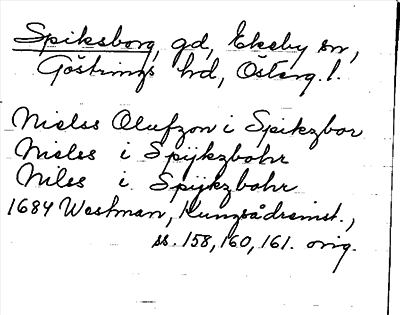 Spiksborg, gd, Ekeby sn,
Göstrings hd, Österg. l.
Nielss Olufzon i Spikzbor
Nielss i Spijkzbohr
Nilss i Spijkzbohr
1684 Westman, Kungsådreinst.,
ss. 158, 160, 161. orig.